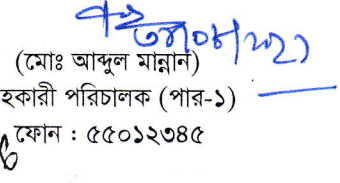 (মোঃ আব্দুল মান্নান)
হকারী পরিচালক (পার-১)
ফোন : ৫৫০১২৩৪৫